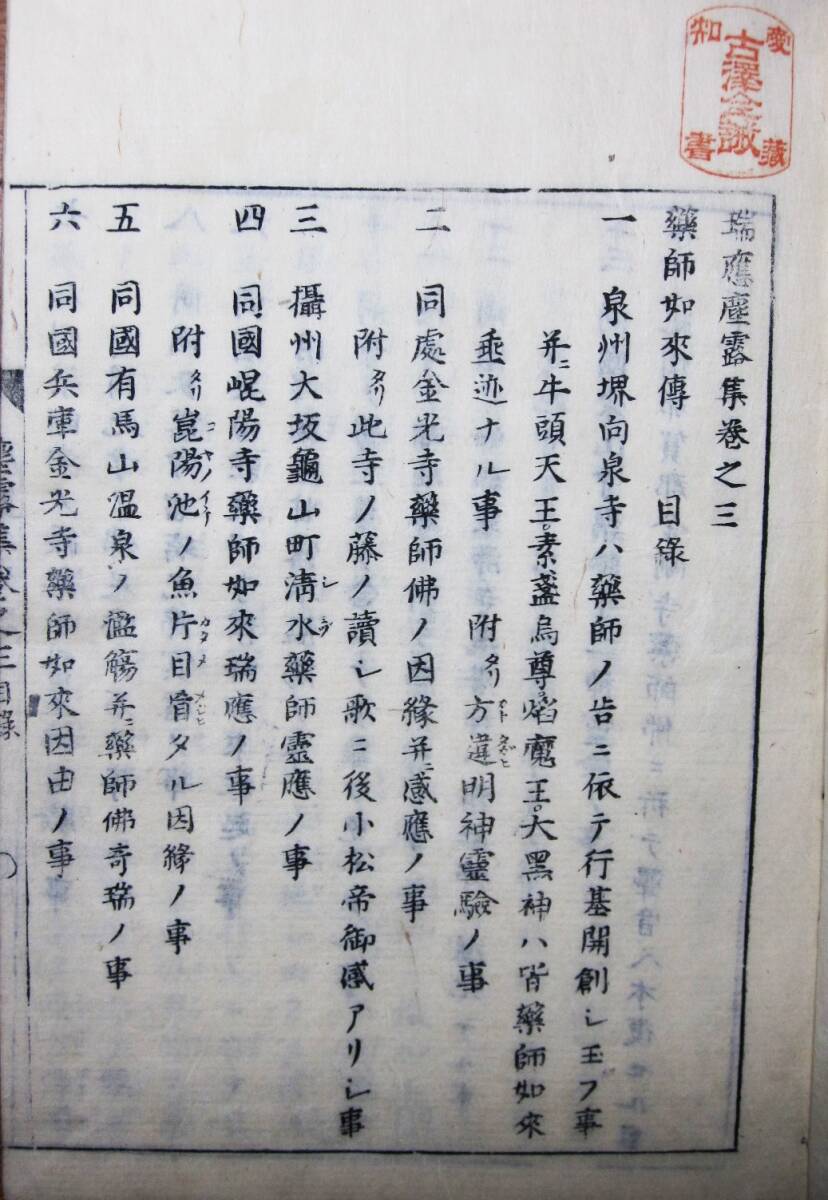 瑞應塵露集巻之三
藥師如來傳 目錄
一 泉州堺向泉寺ハ藥師ノ告ニ依テ行基開創シ玉フ事
并ニ牛頭天王素盞烏尊焰魔王大黑神ハ皆藥師如來
垂迹ナル事 附タリ方違明神靈驗ノ事
二 同處金光寺藥師佛ノ因緣并ニ感應ノ事
附タリ此寺ノ藤ノ讀シ歌ニ後小松帝御感アリシ事
三 攝州大坂龜山町淸水藥師靈應ノ事
四 同國崐陽寺藥師如來瑞應ノ事
附タリ崑陽池ノ魚片目盲タル因緣ノ事
五 同國有馬山温泉ノ濫觴并ニ藥師佛奇瑞ノ事
六 同國兵庫金光寺藥師如來因由ノ事
塵露集巻之三目錄
愛知
古澤
藏書